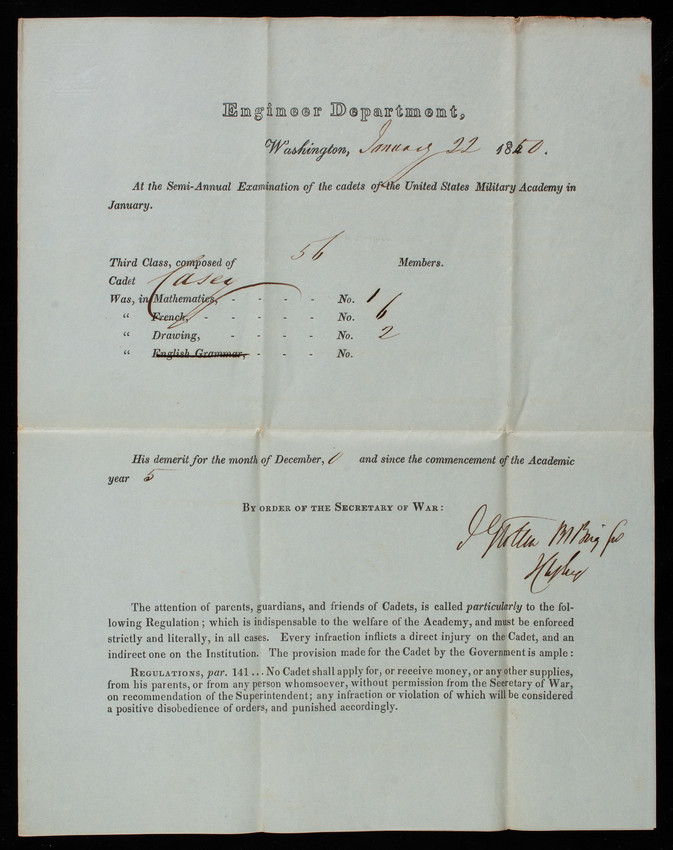 Engineer Department,
Washington, January 22 1850.
At the Semi-Annual Examination of the cadets of the United States Military Academy in
January.
Third Class, composed of 56 Members.
Cadet Casey
Was, in Mathematics, - - - - No. 1
“ French, - - - - No. 6
“ Drawing, - - - - No. 2
“ English Grammar, - - - No.
His demerit for the month of December, 0 and since the commencement of the Academic
year 5
By order of the Secretary of War:
The attention of parents, guardians, and friends of Cadets, is called particularly to the fol-
lowing Regulation; which is indispensable to the welfare of the Academy, and must be enforced
strictly and literally, in all cases. Every infraction inflicts a direct injury on the Cadet, and an
indirect one on the Institution. The provision made for the Cadet by the Government is ample:
Regulations, par. 141 ... No Cadet shall apply for, or receive money, or any other supplies,
from his parents, or from any person whomsoever, without permission from the Secretary of War,
on recommendation of the Superintendent; any infraction or violation of which will be considered
a positive disobedience of orders, and punished accordingly.